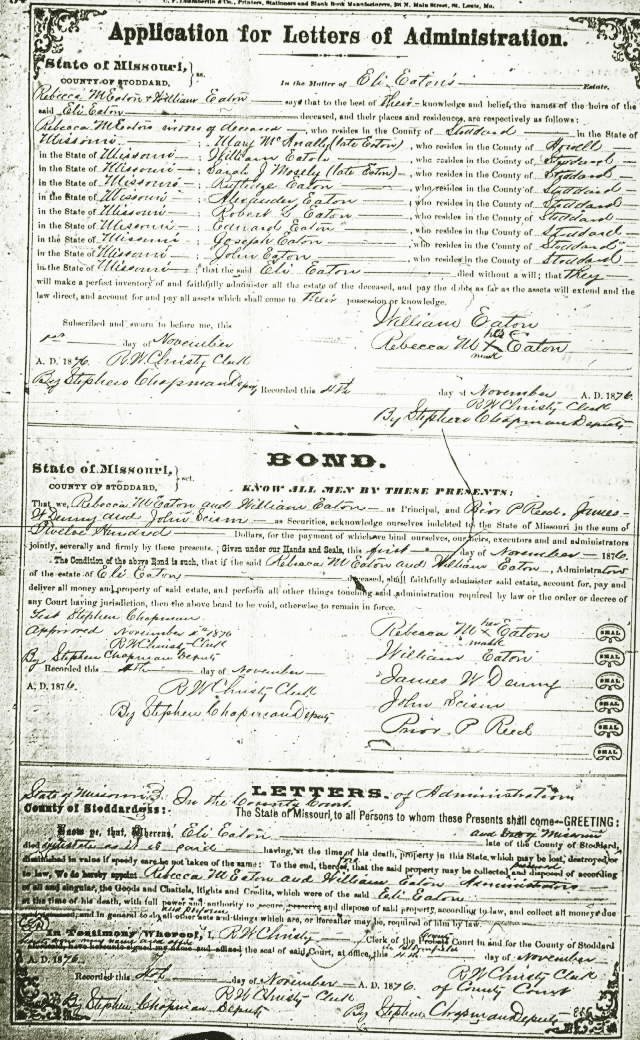 C. F. Chamberlin & Co., Printers, Stationers and Blank Book Manufacturers, N. Main Street, St. Louis, Mo.
Application for Letters of Administration.
State of Missouri, } ss.
COUNTY OF STODDARD,
In the Matter of Eli Eaton's Estate.
Rebecca M Eaton & William Eaton says that to the best of their knowledge and belief, the names of the heirs of the
said Eli Eaton deceased, and their places and residences, are respectively as follows:
Rebecca M Eaton widow of deceased, who resides in the County of Stoddard in the State of
Missouri ; Mary McAnally (late Eaton), who resides in the County of Howell
in the State of Missouri ; William Eaton, who resides in the County of Stoddard
in the State of Missouri ; Sarah J Mosely (late Eaton), who resides in the County of Stoddard
in the State of Missouri ; Rutledge Eaton, who resides in the County of Stoddard
in the State of Missouri ; Alexander Eaton, who resides in the County of Stoddard
in the State of Missouri ; Robert Eaton, who resides in the County of Stoddard
in the State of Missouri ; Edward Eaton, who resides in the County of Stoddard
in the State of Missouri ; Joseph Eaton, who resides in the County of Stoddard
in the State of Missouri ; John Eaton, who resides in the County of Stoddard
in the State of Missouri ; that the said Eli Eaton died without a will; that they
will make a perfect inventory of and faithfully administer all the estate of the deceased, and pay the debts as far as the assets will extend and the
law direct, and account for and pay all assets which shall come to their possession or knowledge.
Subscribed and sworn to before me, this
day of November
A. D. 1876. R. W. Christy Clerk
By Stephen Chapman Deputy
William Eaton
Rebecca M her X mark Eaton
Recorded this 4th day of November A. D. 1876.
R W Christy Clerk
By Stephen Chapman Deputy
BOND.
State of Missouri, } sct.
COUNTY OF STODDARD,
KNOW ALL MEN BY THESE PRESENTS:
That we, Rebecca M Eaton and William Eaton as Principal, and Prior P Reed, James
W Denny and John Scism as Securities, acknowledge ourselves indebted to the State of Missouri in the sum of
Twelve Hundred Dollars, for the payment of which we bind ourselves, our heirs, executors and administrators
jointly, severally and firmly by these presents. Given under our Hands and Seals, this first day of November 1876.
The Condition of the above Bond is such, that if the said Rebecca M Eaton and William Eaton, Administrators
of the estate of Eli Eaton deceased, shall faithfully administer said estate, account for, pay and
deliver all money and property of said estate, and perform all other things touching said administration required by law or the order or decree of
any Court having jurisdiction, then the above bond to be void, otherwise to remain in force.
Test Stephen Chapman
Approved November 4th 1876
R W Christy Clerk
By Stephen Chapman Deputy
Recorded this 4th day of November
A. D. 1876. R W Christy Clerk
By Stephen Chapman Deputy
Rebecca M her X mark Eaton SEAL
William Eaton SEAL
James W Denny SEAL
John Scism SEAL
Prior P Reed SEAL
SEAL
LETTERS. of Administration
State of Missouri } In the County Court
County of Stoddard ss:
The State of Missouri, to all Persons to whom these Presents shall come—GREETING:
Know ye, that, Whereas, Eli Eaton late of the County of Stoddard, and State of Missouri
died intestate as it is said having, at the time of his death, property in this State, which may be lost, destroyed or
diminished in value if speedy care be not taken of the same: To the end, therefore, that the said property may be collected and disposed of according
to law, We do hereby appoint Rebecca M Eaton and William Eaton Administrators
of all and singular, the Goods and Chattels, Rights and Credits, which were of the said Eli Eaton
at the time of his death, with full power and authority to secure and dispose of said property, according to law, and collect all moneys due
deceased; and in general to do and perform all other acts and things which are, or hereafter may be, required of him by law
In Testimony Whereof, I, R W Christy Clerk of the County Court in and for the County of Stoddard
the seal of said Court, at office, this 4th day of November
A. D. 1876.
Recorded this 4th day of November A. D. 1876.
R W Christy Clerk
By Stephen Chapman Deputy
R W Christy Clerk
of County Court
By Stephen Chapman Deputy